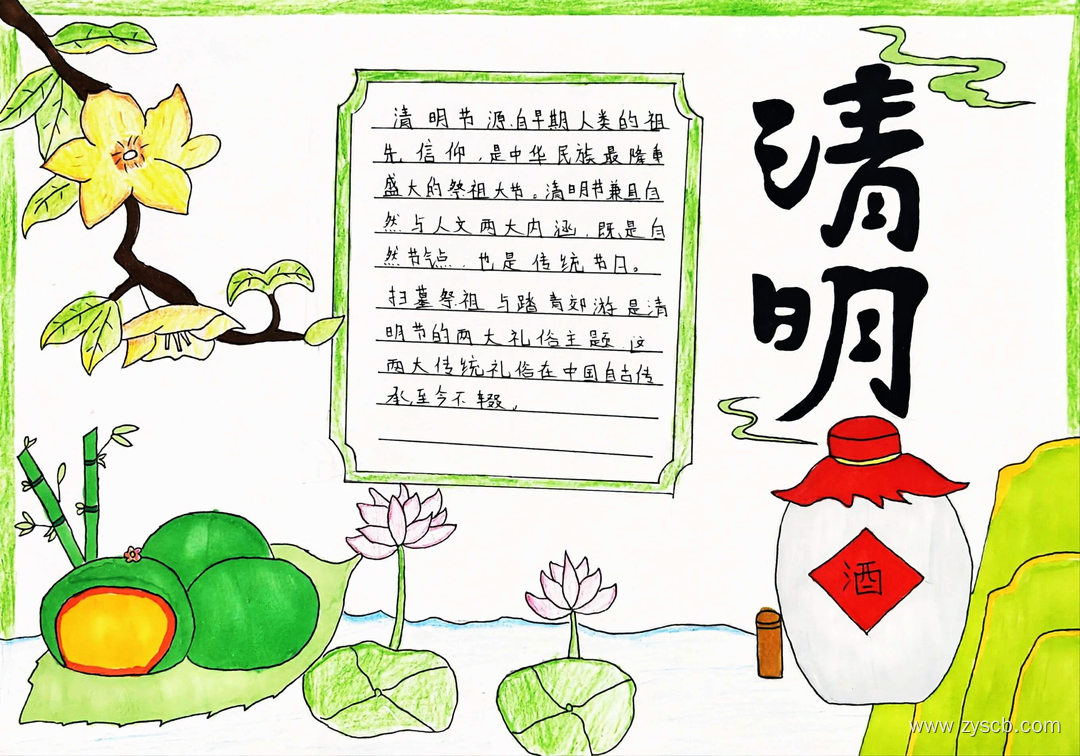 清明
清明节源自早期人类的祖
先信仰,是中华民族最隆重
盛大的祭祖大节。清明节兼具自
然与人文两大内涵,既是自
然节气点,也是传统节日。
扫墓祭祖与踏青郊游是清
明节的两大礼俗主题,这
两大传统礼俗在中国自古传
承,至今不辍。
酒
www.zyscb.com